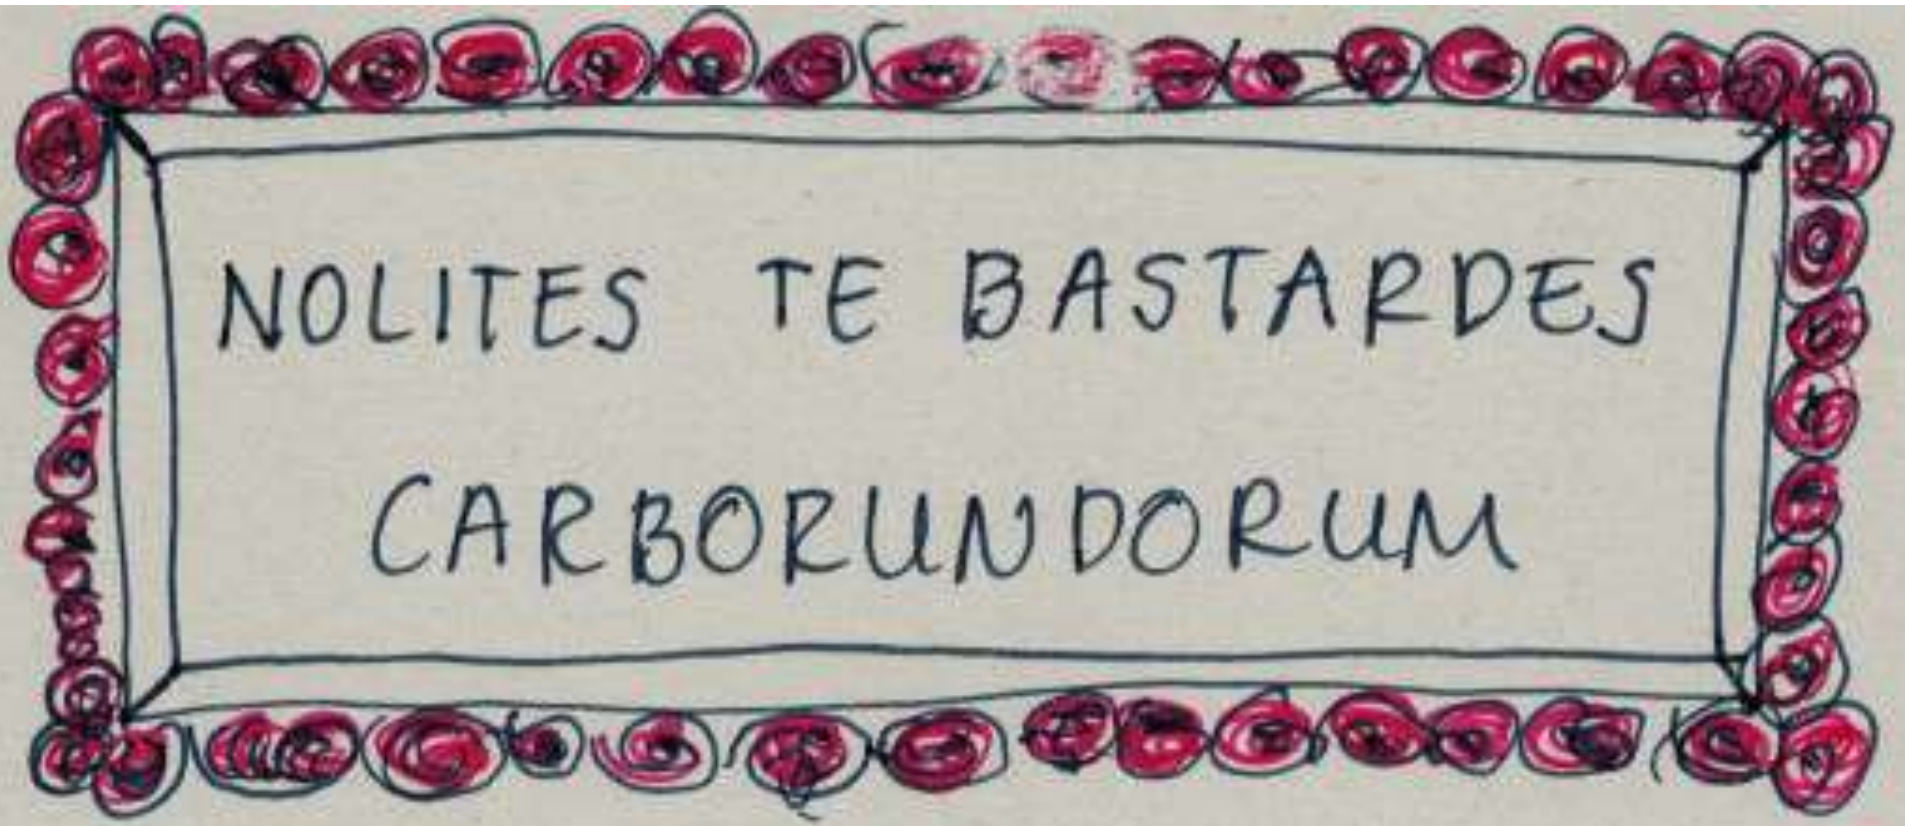 NOLITES TE BASTARDES
CARBORUNDORUM